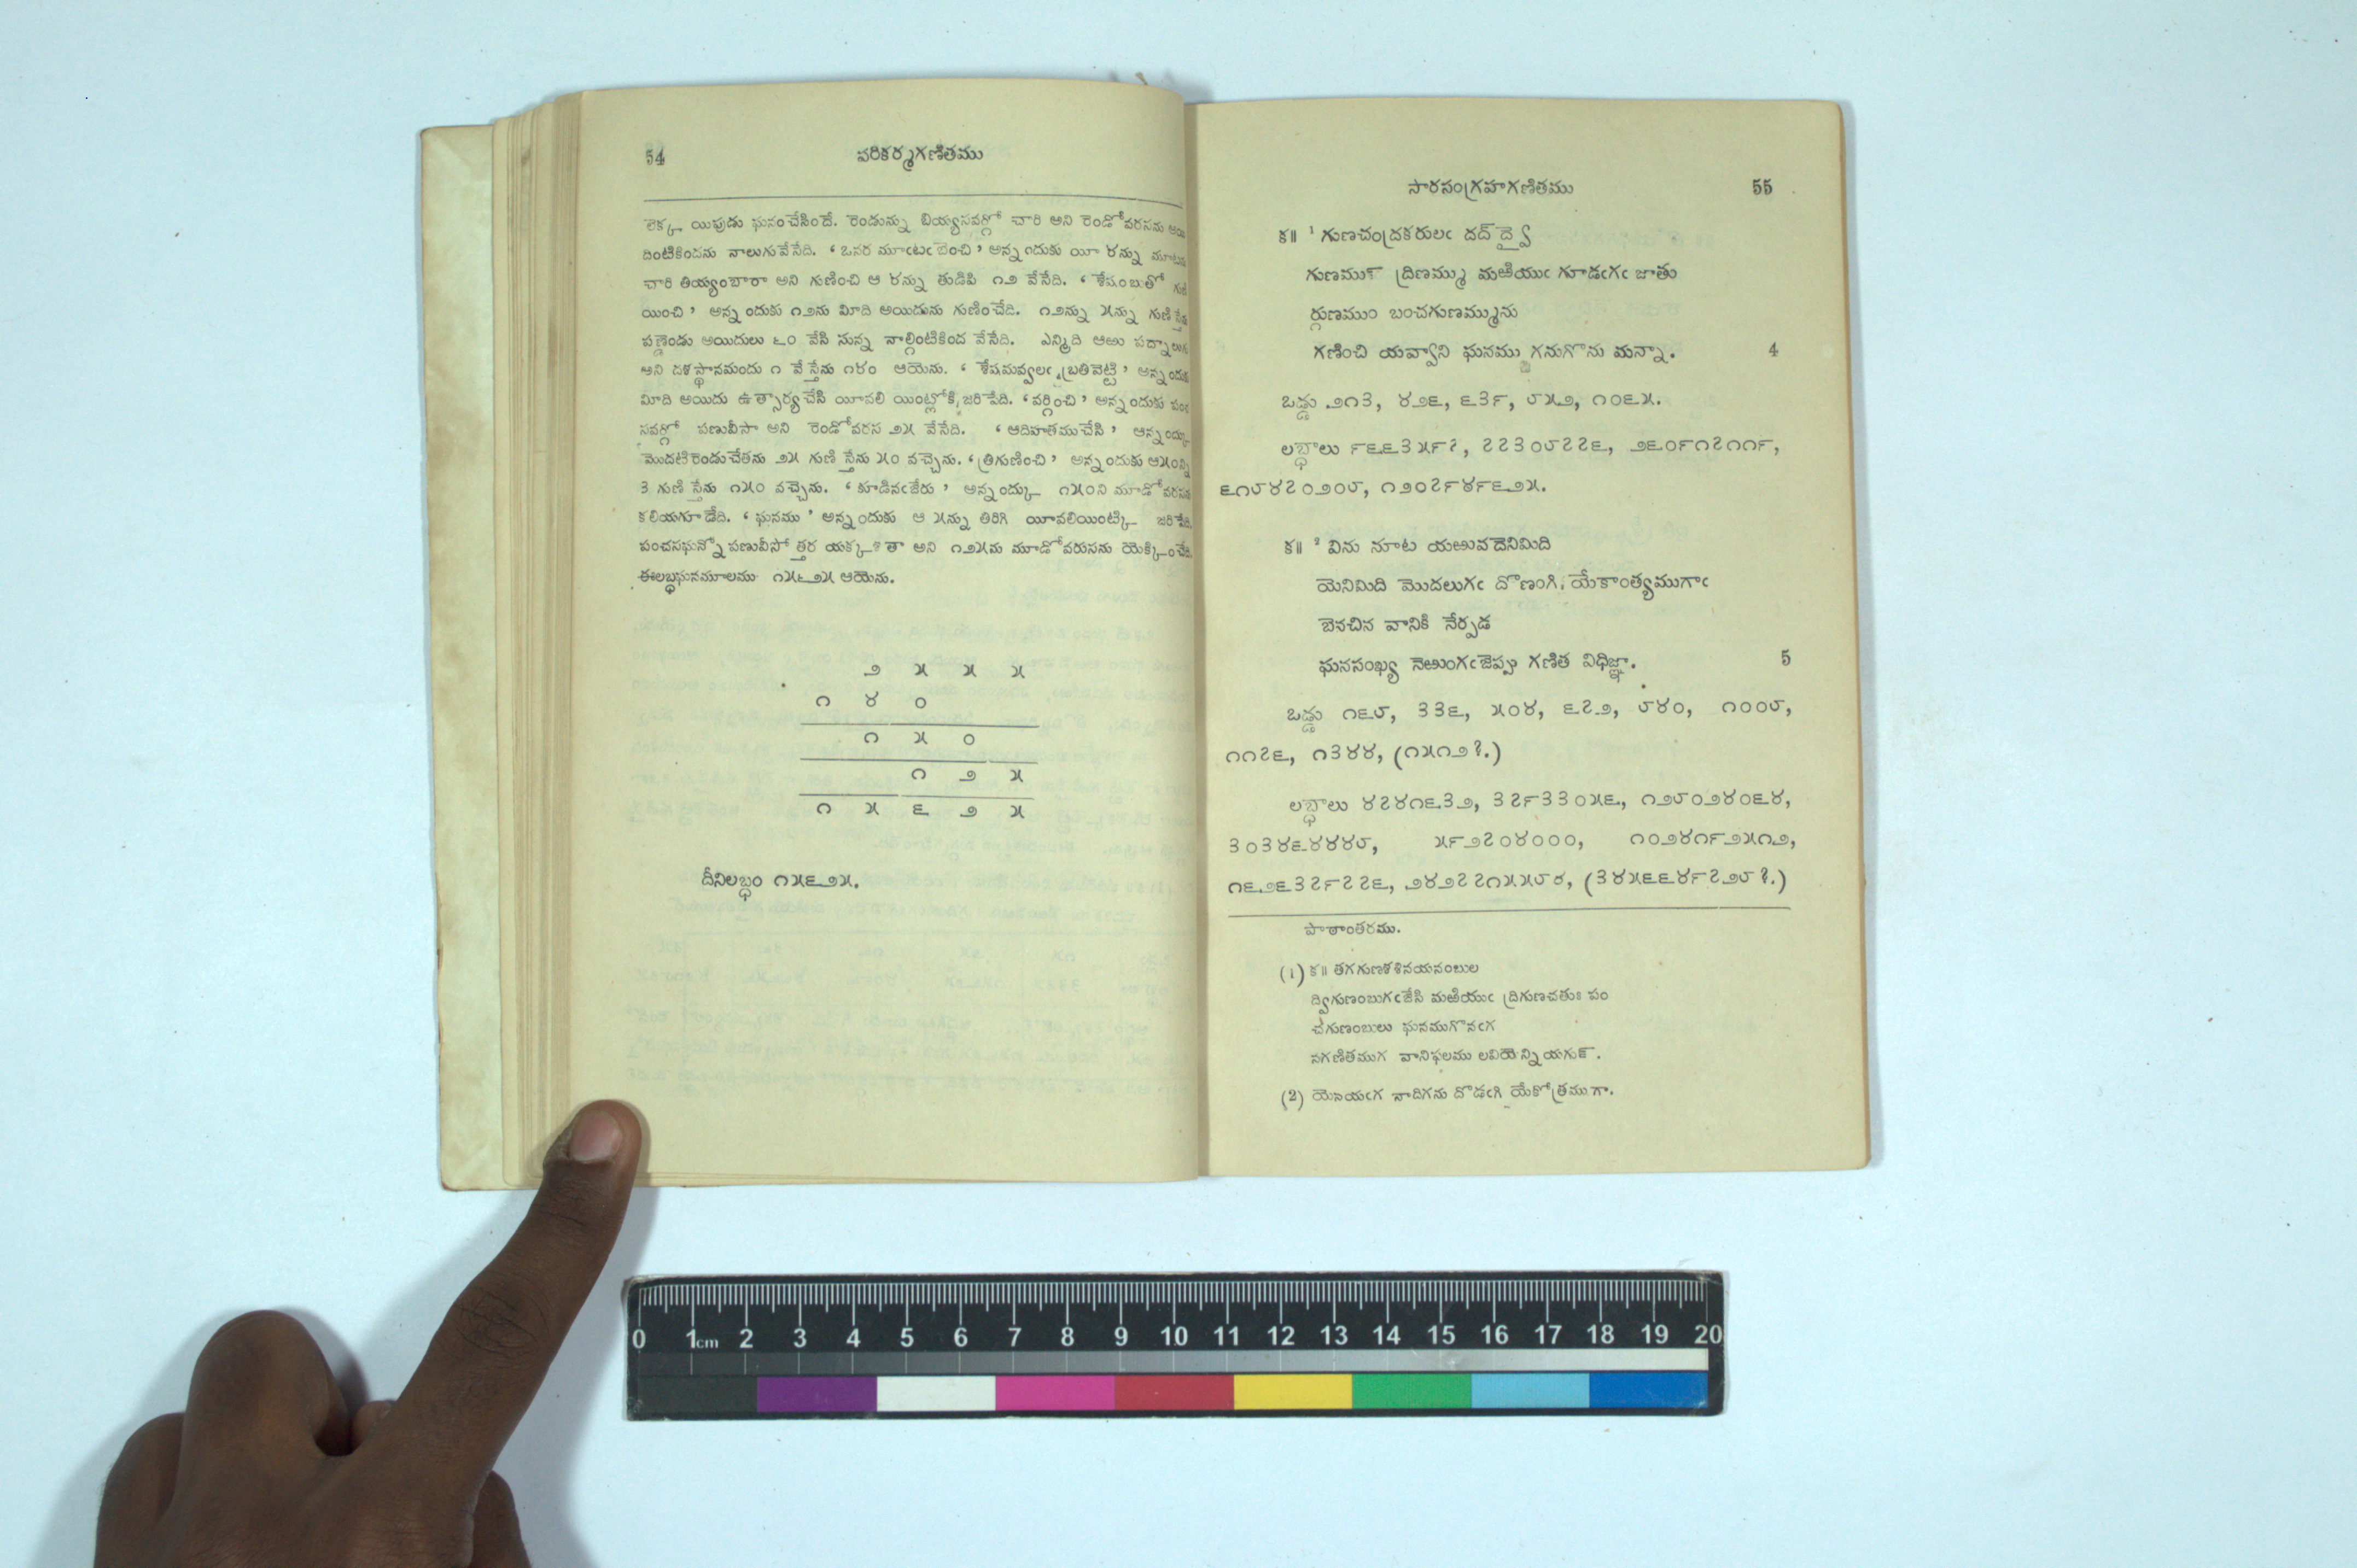 54
పరికర్మగణితము
లెక్క యిపుడు ఘనంచేసిందే. రెండున్ను బియ్యసవర్గో చారి అని రెండోవరసను అయి
దింటికిందను నాలుగువేసేది. ‘ఒనర మూఁటఁ బెంచి’ అన్నందుకు యీ ౪న్ను మూటను
చారి తియ్యంబారా అని గుణించి ఆ ౪న్ను తుడిపి ౧౨ వేసేది. ‘శేషంబుతో గుణి
యించి’ అన్నందుకు ౧౨ను మీది అయిదును గుణించేది. ౧౨న్ను ౫న్ను గుణిస్తేను
పణ్డెండు అయిదులు ౬౦ వేసి సున్న నాల్గింటికింద వేసేది. ఎన్మిది ఆఱు పద్నాలుగు
అని దశస్థానమందు ౧ వేస్తేను ౧౪౦ ఆయెను. ‘శేషమవ్వలఁ బ్రతివెట్టి’ అన్నందుకు
మీది అయిదు ఉత్సార్యచేసి యీవలి యింట్లోకి జరిపేది. ‘వర్గించి’ అన్నందుకు పంచ
సవర్గో పణువీసా అని రెండోవరస ౨౫ వేసేది. ‘ఆదిహతముచేసి’ ఆన్నందుకు
మొదటిరెండుచేతను ౨౫ గుణిస్తేను ౫౦ వచ్చెను. ‘త్రిగుణించి’ అన్నందుకు ఆ౫౦న్ని
3 గుణిస్తేను ౧౫౦ వచ్చెను. ‘కూడినఁజేరు’ అన్నందుకు ౧౫౦ని మూడోవరసను
కలియగూడేది. ‘ఘనము’ అన్నందుకు ఆ ౫న్ను తిరిగి యీవలియింట్కి జరిపేది.
పంచసఘన్నో పణువీసోత్తర యక్క?తా అని ౧౨౫ను మూడోవరుసను యెక్కించేది.
ఈలబ్ధఘనమూలము ౧౫౬౨౫ ఆయెను.
౨ ౫ ౫ ౫
౧ ౪ ౦
౧ ౫ ౦
౧ ౨ ౫
౧ ౫ ౬ ౨ ౫
దీనిలబ్ధం ౧౫౬౨౫.
సారసంగ్రహగణితము
55
క॥ ¹ గుణచంద్రకరులఁ దద్ ద్వై
గుణమున్ ద్రిణమ్ము మఱియుఁ గూడఁగఁ జాతు
ర్గుణముం బంచగుణమ్మును
గణించి యవ్వాని ఘనము గనుగొను మన్నా. 4
ఒడ్డు ౨౧౩, ౪౨౬, ౬౩౯, ౮౫౨, ౧౦౬౫.
లబ్ధాలు ౯౬౬౩౫౯౭, ౭౭౩౦౮౭౭౬, ౨౬౦౯౧౭౧౧౯,
౬౧౮౪౭౦౨౦౮, ౧౨౦౭౯౪౯౬౨౫.
క॥ ² విను నూట యఱువదెనిమిది
యెనిమిది మొదలుగఁ దొణంగి, యేకాంత్యముగాఁ
బెనచిన వానికి నేర్పడ
ఘనసంఖ్య నెఱుంగఁజెప్పు గణిత విధిజ్ఞా. 5
ఒడ్డు ౧౬౮, ౩౩౬, ౫౦౪, ౬౭౨, ౮౪౦, ౧౦౦౮,
౧౧౭౬, ౧౩౪౪, (౧౫౧౨?.)
లబ్ధాలు ౪౭౪౧౬౩౨, ౩౭౯౩౩౦౫౬, ౧౨౮౦౨౪౦౬౪,
౩౦౩౪౬౪౪౪౮, ౫౯౨౭౦౪౦౦౦, ౧౦౨౪౧౯౨౫౧౨,
౧౬౨౬౩౭౯౭౭౬, ౨౪౨౭౭౧౫౫౮౪, (౩౪౫౬౬౪౯౭౨౮?.)
పాఠాంతరము.
(1) క॥ తగగుణశశినయనంబుల
ద్విగుణంబుగఁజేసి మఱియుఁ ద్రిగుణచతుః పం
చగుణంబులు ఘనముగొనఁగ
నగణితముగ వానిఫలము లవియెన్ని యగున్.
(2) యెనయఁగ నాదిగను దొడఁగి యేకోత్రముగా.
0 1cm 2 3 4 5 6 7 8 9 10 11 12 13 14 15 16 17 18 19 20